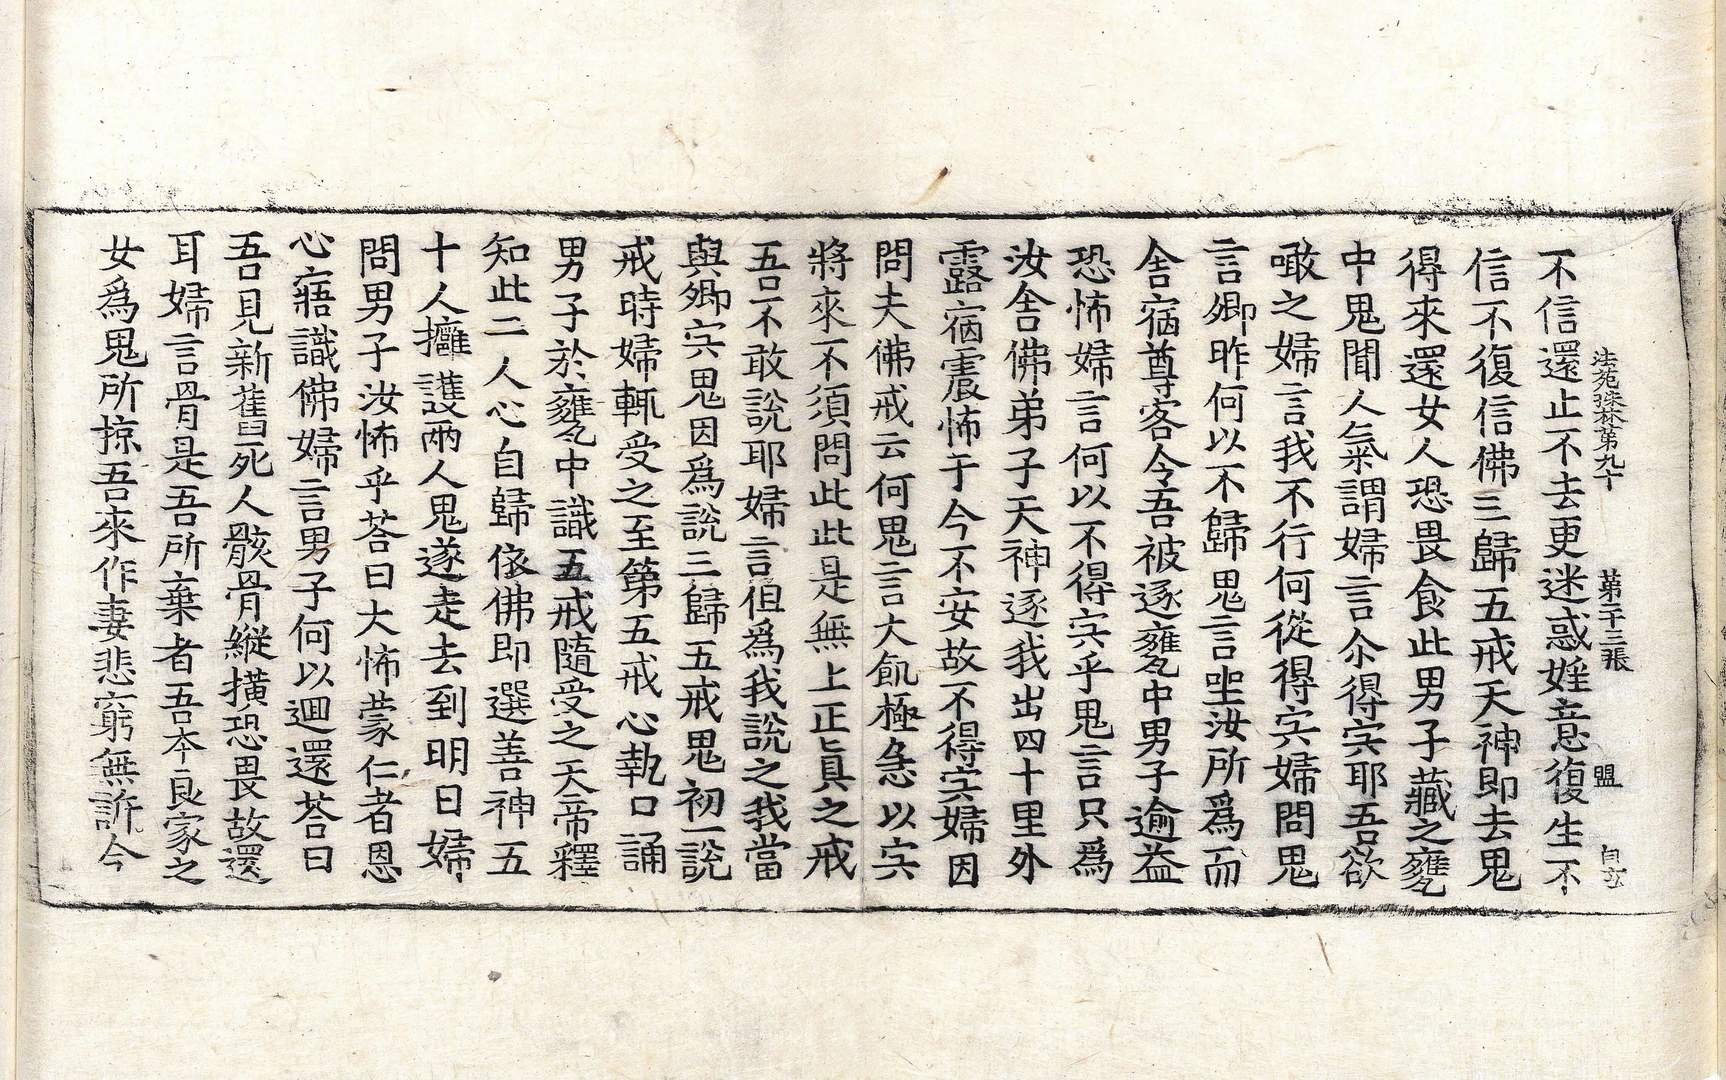 法苑珠林第九十 第二十三張 盟
不信還止不去更迷惑婬意復生不
信不復信佛三歸五戒天神即去鬼
得來還女人恐畏食此男子藏之甕
中鬼聞人氣謂婦言尒得宍耶吾欲
噉之婦言我不行何從得宍婦問鬼
言卿昨何以不歸鬼言坐汝所爲而
舍宿尊客令吾被逐甕中男子逾益
恐怖婦言何以不得宍乎鬼言只爲
汝舍佛弟子天神逐我出四十里外
露宿震怖于今不安故不得宍婦因
問夫佛戒云何鬼言大飢極急以宍
將來不須問此此是無上正眞之戒
吾不敢說耶婦言但爲我說之我當
與卿宍鬼因爲說三歸五戒鬼初一說
戒時婦輒受之至第五戒心執口誦
男子於甕中識五戒隨受之天帝釋
知此二人心自歸依佛即選善神五
十人擁護兩人鬼遂走去到明日婦
問男子汝怖乎荅曰大怖蒙仁者恩
心寤識佛婦言男子何以迴還荅曰
吾見新舊死人骸骨縱橫恐畏故還
耳婦言骨是吾所棄者吾本良家之
女爲鬼所掠吾來作妻悲窮無訴今